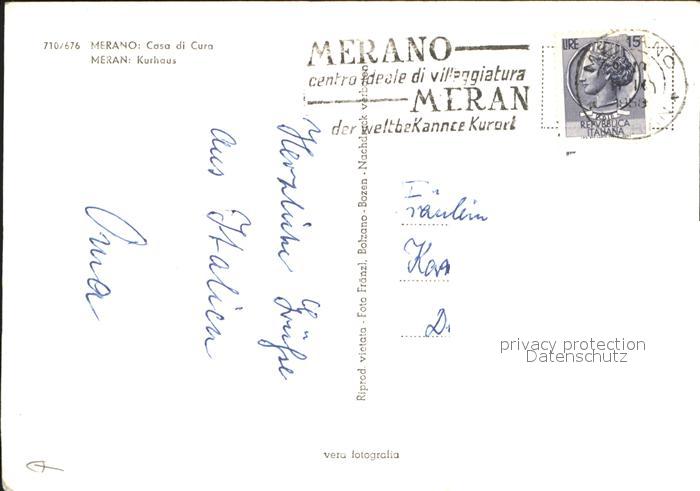 710/676 MERANO: Casa di Cura
MERAN: Kurhaus
MERANO
centro ideale di villeggiatura
MERAN
der weltbekannte Kurort
LIRE 15
REPVBBLICA
ITALIANA
MERANO
1958
Herzliche Grüße
aus Italien
Riprod. vietata - Foto Fränzl, Bolzano-Bozen - Nachdruck verboten
Fräulein
privacy protection
Datenschutz
vera fotografia